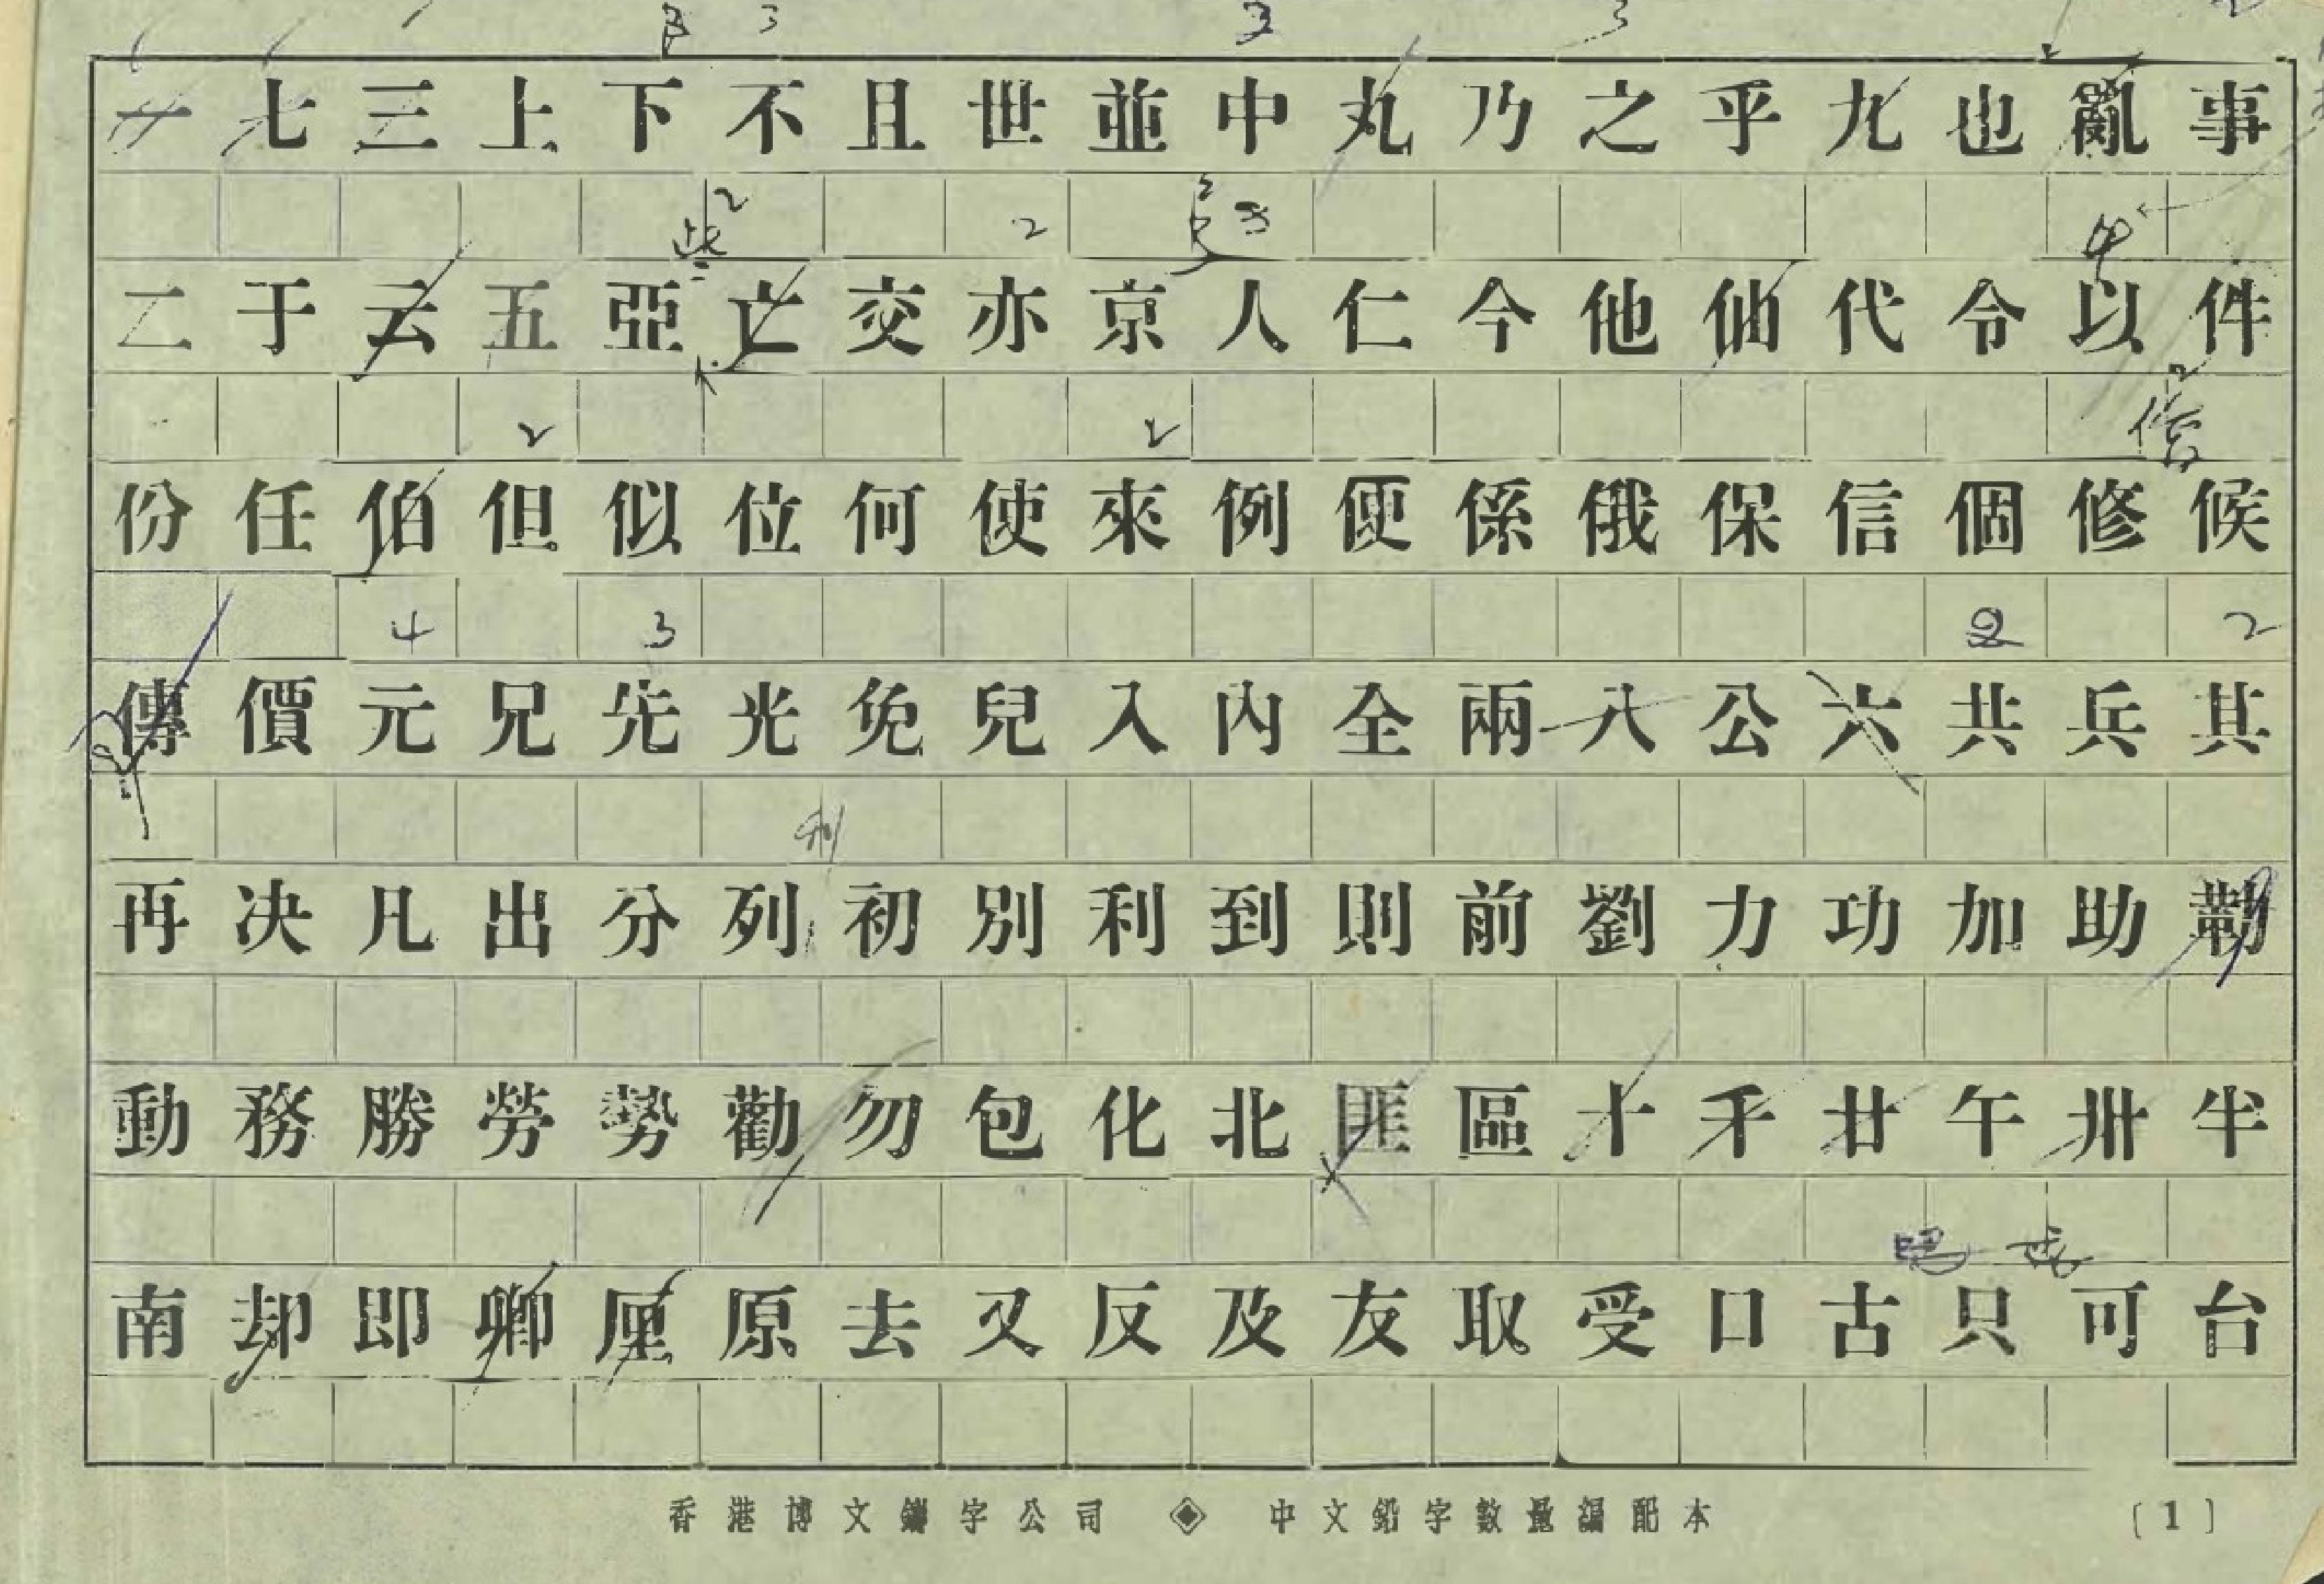 一七三上下不且世並中丸乃之乎九也亂事
二于云五亞亡交亦京人仁今他仙代令以件
份任伯但似位何使來例便係俄保信個修候
傳價元兄先光免兒入內全兩八公六共兵其
再決凡出分列初別利到則前劉力功加助勒
動務勝勞勢勸勿包化北匪區十千廿午卅半
南却即卿厘原去又反及友取受口古只可台
香港博文鑄字公司 ◈ 中文鉛字數量編配本 〔1〕